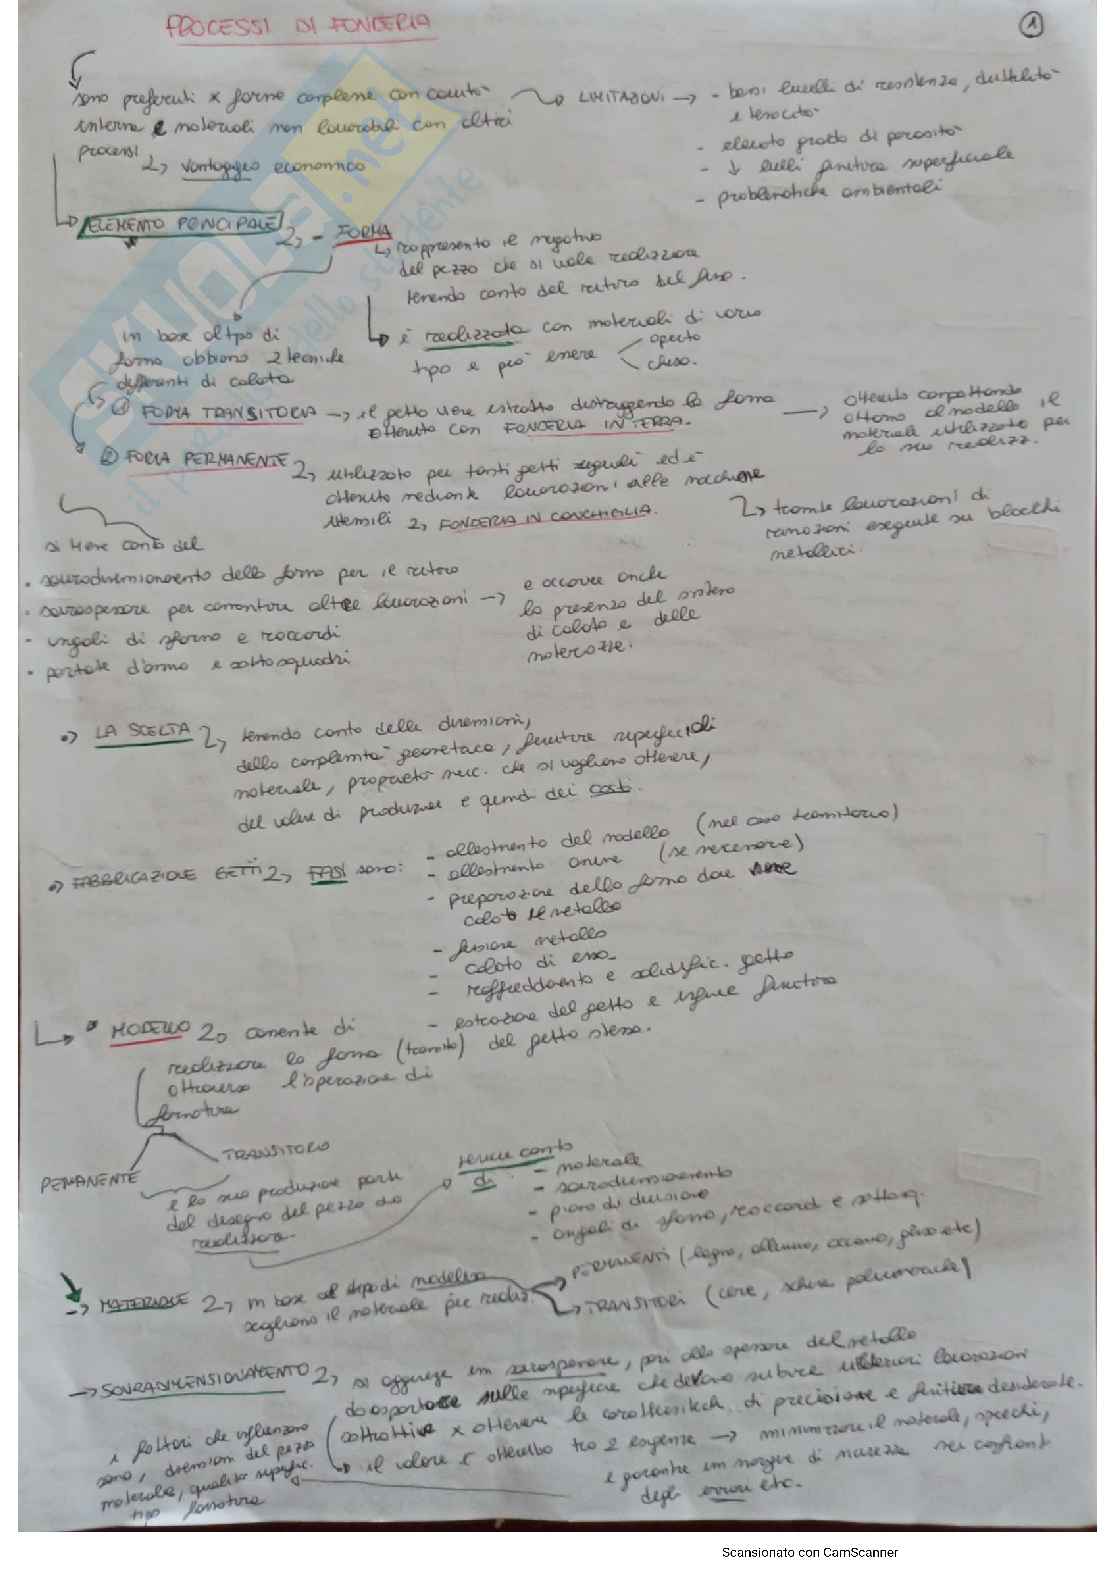 PROCESSI DI FONDERIA
1
sono preferiti x forme complesse con cavità
interne e materiali non lavorabili con altri
processi
vantaggio economico
LIMITAZIONI → - bassi livelli di resistenza, duttilità
e tenacità
- elevato grado di porosità
- ↓ livelli finitura superficiale
- problematiche ambientali
ELEMENTO PRINCIPALE
- FORMA
rappresenta il negativo
del pezzo che si vuole realizzare
tenendo conto del ritiro del fuso.
è realizzata con materiali di vario
tipo e può essere
aperta
chiusa.
in base al tipo di
forma abbiamo 2 tecniche
differenti di colata
① FORMA TRANSITORIA → il getto viene estratto distruggendo la forma
ottenuta con FONDERIA IN TERRA.
→ ottenuta compattando
attorno al modello il
materiale utilizzato per
la sua realizz.
② FORMA PERMANENTE
utilizzata per tanti getti uguali ed è
ottenuta mediante lavorazioni alle macchine
utensili
FONDERIA IN CONCHIGLIA.
tramite lavorazioni di
rimozioni eseguite su blocchi
metallici.
si tiene conto del
• sovradimensionamento della forma per il ritiro
• sovraspessore per consentire altre lavorazioni →
- angoli di sformo e raccordi
• portate d'anima e sottosquadri
e occorre anche
la presenza del sistema
di colata e delle
materozze.
•) LA SCELTA
tenendo conto delle dimensioni,
della complessità geometrica, finiture superficiali
materiale, proprietà mecc. che si vogliono ottenere,
del volume di produzione e quindi dei costi.
•) FABBRICAZIONE GETTI
FASI sono:
- allestimento del modello (nel caso transitorio)
- allestimento anime (se necessarie)
- preparazione della forma dove
cola il metallo
- fusione metallo
- colata di esso
- raffreddamento e solidific. getto
- estrazione del getto e finitura
• MODELLO
consente di
realizzare la forma (transito) del getto stesso.
attraverso l'operazione di
formatura
PERMANENTE
TRANSITORIO
e la sua produzione parte
dal disegno del pezzo da
realizzare
tenere conto
di
- materiale
- sovradimensionamento
- piano di divisione
- angoli di sformo, raccordi e sottosq.
→ MATERIALE
in base al tipo di modello
scegliamo il materiale per realizz.
PERMANENTI (legno, alluminio, acciaio, gesso etc)
TRANSITORI (cere, schiume polimeriche)
→ SOVRADIMENSIONAMENTO
si aggiunge un sovraspessore, pari allo spessore del metallo
da asportare sulle superfici che devono subire ulteriori lavorazioni
sottrattive x ottenere le caratteristich. di precisione e finitura desiderate.
il valore è ottenuto tra 2 esigenze → minimizzare il materiale, sprechi,
e garantire un margine di sicurezza nei confronti
degli errori etc.
i fattori che influenzano
sono, dimensioni del pezzo
materiale, qualità superfic.
tipo formatura
SKUOLA.net
Scansionato con CamScanner